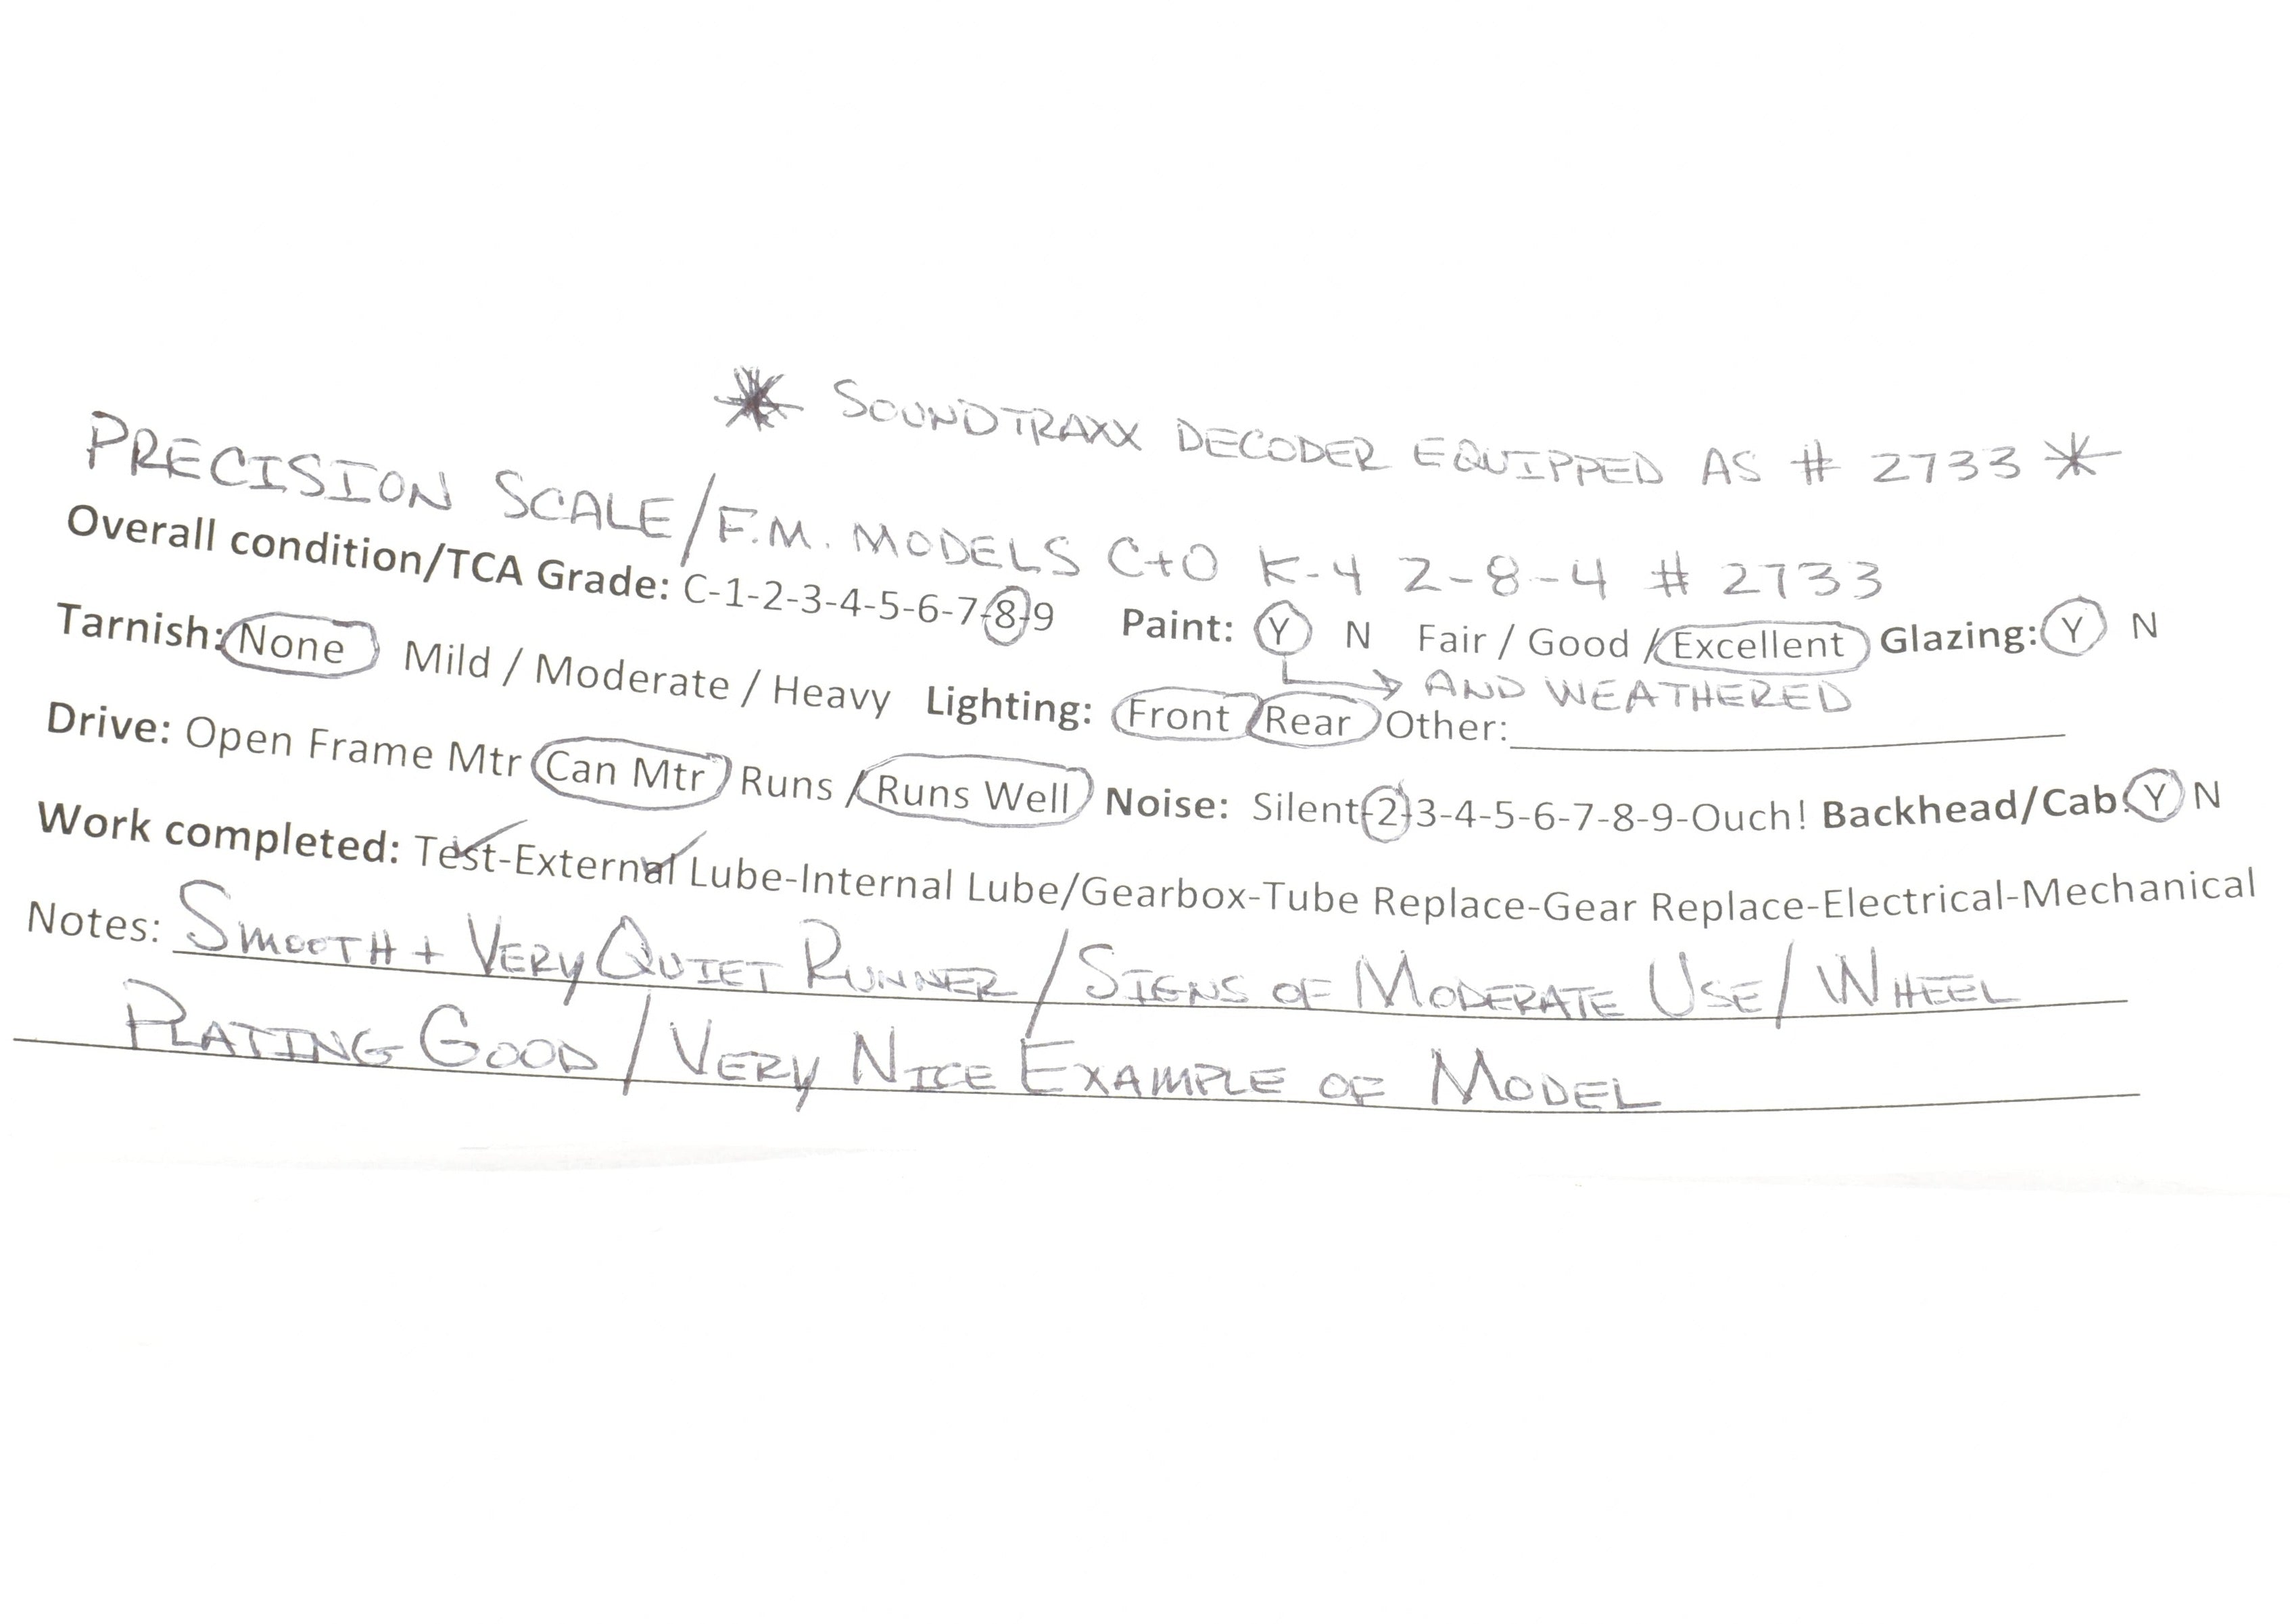 * SOUNDTRAXX DECODER EQUIPPED AS # 2733 *
PRECISION SCALE/F.M. MODELS C+O K-4 2-8-4 # 2733
Overall condition/TCA Grade: C-1-2-3-4-5-6-7-8-9 Paint: Y N Fair / Good / Excellent Glazing: Y N
AND WEATHERED
Tarnish: None Mild / Moderate / Heavy Lighting: Front / Rear Other:
Drive: Open Frame Mtr Can Mtr Runs / Runs Well Noise: Silent-2-3-4-5-6-7-8-9-Ouch! Backhead/Cab: Y N
Work completed: Test-External Lube-Internal Lube/Gearbox-Tube Replace-Gear Replace-Electrical-Mechanical
Notes: SMOOTH + VERY QUIET RUNNER / SIGNS OF MODERATE USE / WHEEL
PLATING GOOD / VERY NICE EXAMPLE OF MODEL